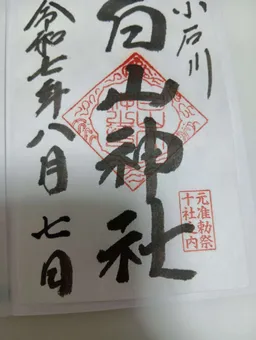 小石川
白山神社
元准勅祭
十社之内
令和七年八月七日